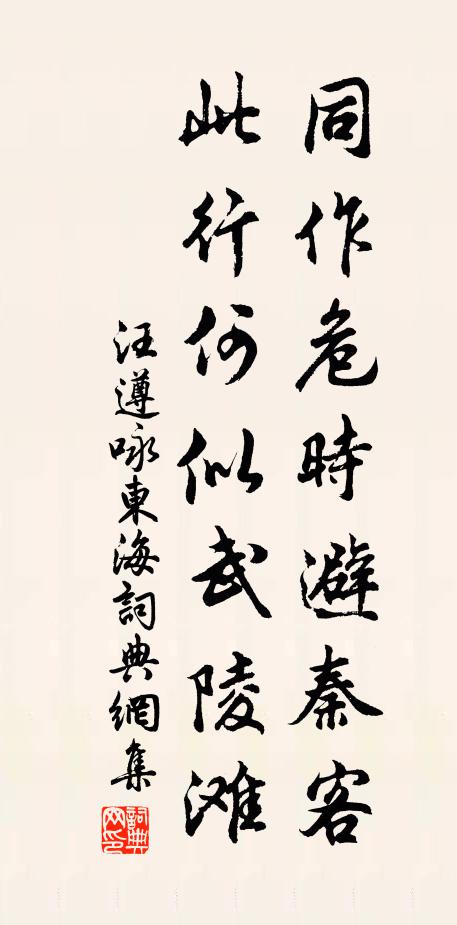 同作危時避秦客
此行何似武陵滩
汪遵咏東海詞典網集
詞典网印